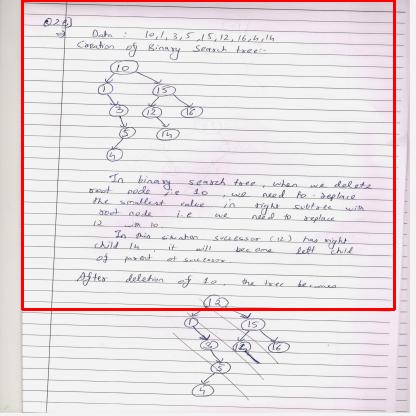 Q2 b]
→ Data : 10, 1, 3, 5, 15, 12, 16, 4, 14
Creation of Binary Search tree:-
10
1 15
3 12 16
5 14
4
In binary search tree, when we delete
root node i.e 10, we need to replace
the smallest value in right subtree with
root node i.e we need to replace
12 with 10.
In this situation successor (12) has right
child 14, it will become left child
of parent of successor.
After deletion of 10, the tree becomes
12
1 15
3 16
5
4